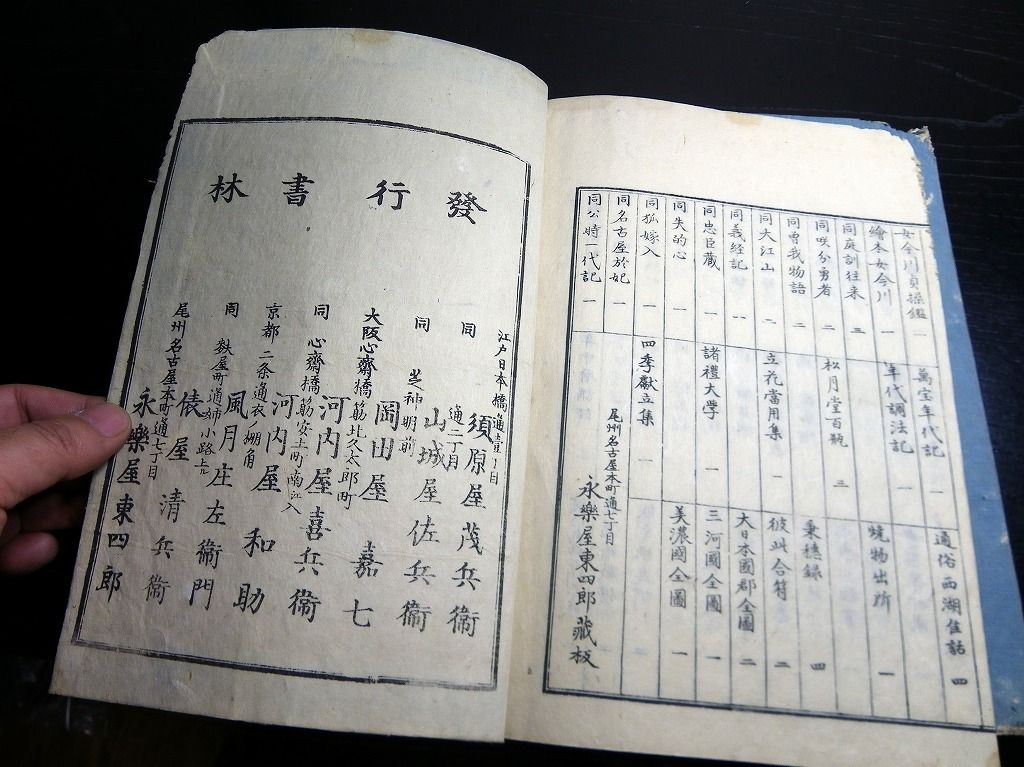 女今川貞操鑑 一
繪本女今川 一
同庭訓往来 三
同咲分勇者 二
同曽我物語 二
同大江山 二
同義經記 一
同忠臣藏 一
同失的心 一
同狐嫁入 一
同名古屋於妃 一
同公時一代記 一
萬宝年代記 一
年代調法記 一
松月堂百瓶 三
立花當用集 一
諸禮大学 一
四季獻立集 一
通俗西湖佳話 四
焼物出所 一
秉穗録 四
彼此合符 二
大日本國郡全圖 二
三河國全圖 一
美濃國全圖 一
尾州名古屋本町通七丁目
永樂屋東四郎藏板
發行書林
江戸日本橋通壹丁目
須原屋茂兵衞
同 通二丁目
山城屋佐兵衞
同 芝神明前
岡田屋嘉七
大阪心齋橋筋北久太郎町
河内屋喜兵衞
同 心齋橋筋安土町南江入
河内屋和助
京都二条通衣ノ棚角
風月庄左衞門
同 麩屋町通姉小路上ル
俵屋清兵衞
尾州名古屋本町通七丁目
永樂屋東四郎